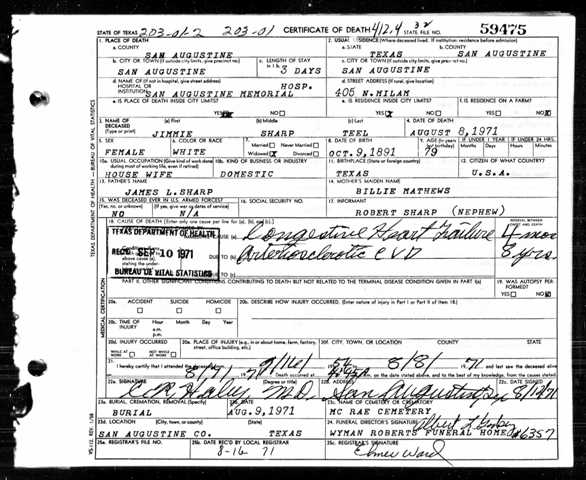 STATE OF TEXAS 203-01-2 203-01 CERTIFICATE OF DEATH 412.4 32 STATE FILE NO. 59475
1. PLACE OF DEATH
a. COUNTY
SAN AUGUSTINE
2. USUAL RESIDENCE (Where deceased lived. If institution: residence before admission)
a. STATE
TEXAS
b. COUNTY
SAN AUGUSTINE
b. CITY OR TOWN (If outside city limits, give precinct no.)
SAN AUGUSTINE
c. LENGTH OF STAY
in 1 b.
3 DAYS
c. CITY OR TOWN (If outside city limits, give precinct no.)
SAN AUGUSTINE
d. NAME OF (If not in hospital, give street address)
HOSPITAL OR
INSTITUTION
HOSP.
SAN AUGUSTINE MEMORIAL
d. STREET ADDRESS (If rural, give location)
405 N.MILAM
e. IS PLACE OF DEATH INSIDE CITY LIMITS?
YES NO
e. IS RESIDENCE INSIDE CITY LIMITS?
YES NO
f. IS RESIDENCE ON A FARM?
YES NO
3. NAME OF
DECEASED
(Type or print)
(a) First
JIMMIE
(b) Middle
SHARP
(c) Last
TEEL
4. DATE OF DEATH
AUGUST 8,1971
5. SEX
FEMALE
6. COLOR OR RACE
WHITE
7. Married Never Married
Widowed Divorced
8. DATE OF BIRTH
OCT.9,1891
9. AGE (In years last birthday)
79
IF UNDER 1 YEAR
IF UNDER 24 HRS.
10a. USUAL OCCUPATION (Give kind of work done during most of working life, even if retired)
HOUSE WIFE
10b. KIND OF BUSINESS OR INDUSTRY
DOMESTIC
11. BIRTHPLACE (State or foreign country)
TEXAS
12. CITIZEN OF WHAT COUNTRY?
U.S.A.
13. FATHER'S NAME
JAMES L.SHARP
14. MOTHER'S MAIDEN NAME
BILLIE MATHEWS
15. WAS DECEASED EVER IN U.S. ARMED FORCES?
(Yes, no, or unknown) (If yes, give war or dates of service)
NO N/A
16. SOCIAL SECURITY NO.
17. INFORMANT
ROBERT SHARP (NEPHEW)
18. CAUSE OF DEATH (Enter only one cause per line for (a), (b), and (c).)
INTERVAL BETWEEN
TEXAS DEPARTMENT OF HEALTH
REC'D SEP 10 1971
BUREAU OF VITAL STATISTICS
(a) Congestive Heart Failure
Arteriosclerotic CVD 8 yrs.
PART II. OTHER SIGNIFICANT CONDITIONS CONTRIBUTING TO DEATH BUT NOT RELATED TO THE TERMINAL DISEASE CONDITION GIVEN IN PART I(a)
19. WAS AUTOPSY PERFORMED?
YES NO
20a. ACCIDENT SUICIDE HOMICIDE
20b. DESCRIBE HOW INJURY OCCURRED. (Enter nature of injury in Part I or Part II of item 18.)
20c. TIME OF INJURY
Hour Month Day Year
a.m.
p.m.
20d. INJURY OCCURRED
WHILE AT WORK NOT WHILE AT WORK
20e. PLACE OF INJURY (e.g., in or about home, farm, factory, street, office building, etc.)
20f. CITY, TOWN, OR LOCATION COUNTY STATE
21. I hereby certify that I attended the deceased from to 8/8/ 71 and last saw the deceased alive
on Death occurred at on the date stated above, and to the best of my knowledge, from the causes stated.
22a. SIGNATURE (Degree or title)
M.D.
22b. ADDRESS
San Augustine,
22c. DATE SIGNED
23a. BURIAL, CREMATION, REMOVAL (Specify)
BURIAL
23b. DATE
AUG.9,1971
23c. NAME OF CEMETERY OR CREMATORY
MC RAE CEMETERY
23d. LOCATION (City, town, or county) (State)
SAN AUGUSTINE CO. TEXAS
24. FUNERAL DIRECTOR'S SIGNATURE
WYMAN ROBERTS FUNERAL HOME #6357
25a. REGISTRAR'S FILE NO.
25b. DATE REC'D BY LOCAL REGISTRAR
8-16 71
25c. REGISTRAR'S SIGNATURE
Elmer Ward
TEXAS DEPARTMENT OF HEALTH — BUREAU OF VITAL STATISTICS
MEDICAL CERTIFICATION
VS-112 REV. 1/58